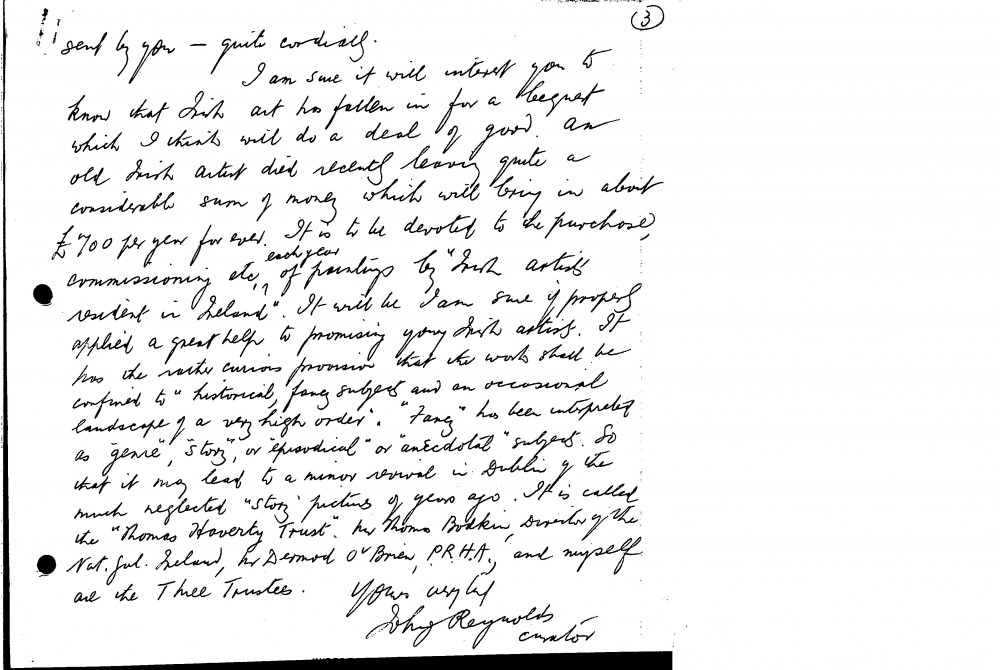 3
sent by you – quite cordially.
I am sure it will interest you to
know that Irish art has fallen in for a bequest
which I think will do a deal of good. An
old Irish artist died recently leaving quite a
considerable sum of money which will bring in about
£700 per year for ever. It is to be devoted to the purchase,
commissioning etc, each year of paintings by "Irish artists
resident in Ireland". It will be I am sure if properly
applied a great help to promising young Irish artists. It
has the rather curious provision that the works shall be
confined to "historical, fancy subjects and an occasional
landscape of a very high order". "Fancy" has been interpreted
as "genre", "story", or "episodical" or "anecdotal" subjects. So
that it may lead to a minor revival in Dublin of the
much neglected "story" pictures of years ago. It is called
the "Thomas Haverty Trust". Mr Thomas Bodkin, Director of the
Nat. Gal. Ireland, Mr Dermod O'Brien, P.R.H.A., and myself
are the Three Trustees.
Yours very truly
John J Reynolds
curator